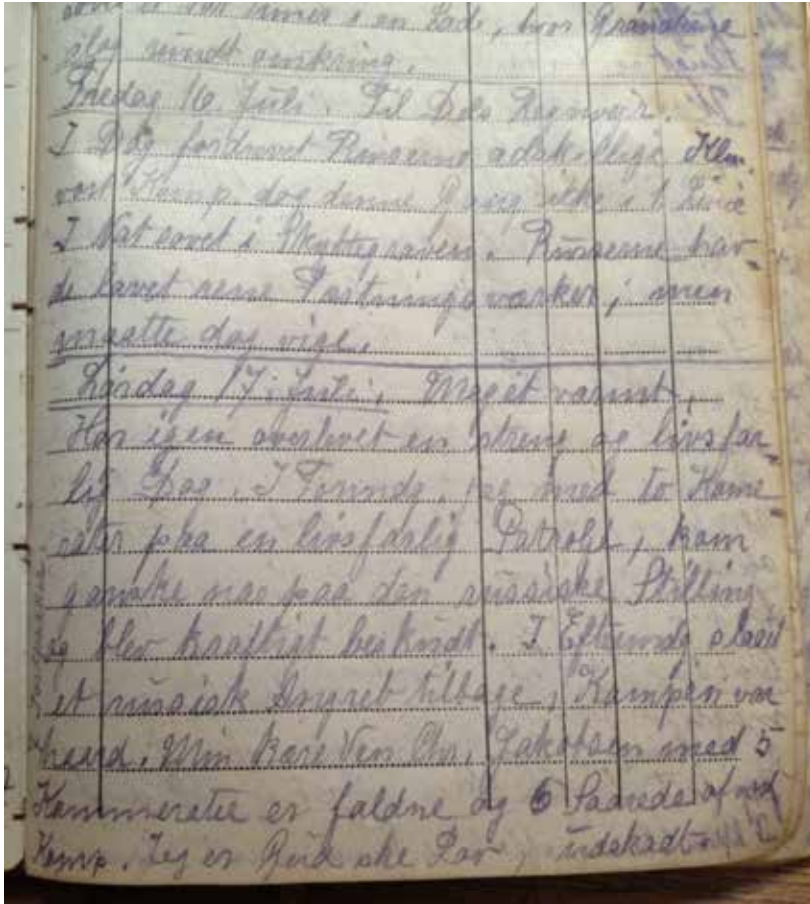 i en Lade, hvor Granaterne
slog rundt omkring.
Fredag 16. Juli. Til Dels Regnveir.
I Dag fordrevet Russerne adskillige Klm.
vort Komp. dog denne Gang ikke i 1 Linie
I Nat sovet i Skyttegraven. Russerne hav-
de lavet nene Fastningsværker, men
maatte dog vige.
Lørdag 17. Juli. Meget varmt.
Har igen overlevet en streng og livsfar-
lig Dag. I Formdg. med to Kame
rater paa en livsfarlig Patrolje, kom
ganske nær paa den russiske Stilling
og blev kraftigt beskudt. I Eftermdg slaaet
et russisk Angreb tilbage, Kampen var
haard. Min kære Ven Chr. Jakobsen med 5
Kammerater er faldne og 6 Saarede af vort
Komp. Jeg er Gud ske Lov, uskadt